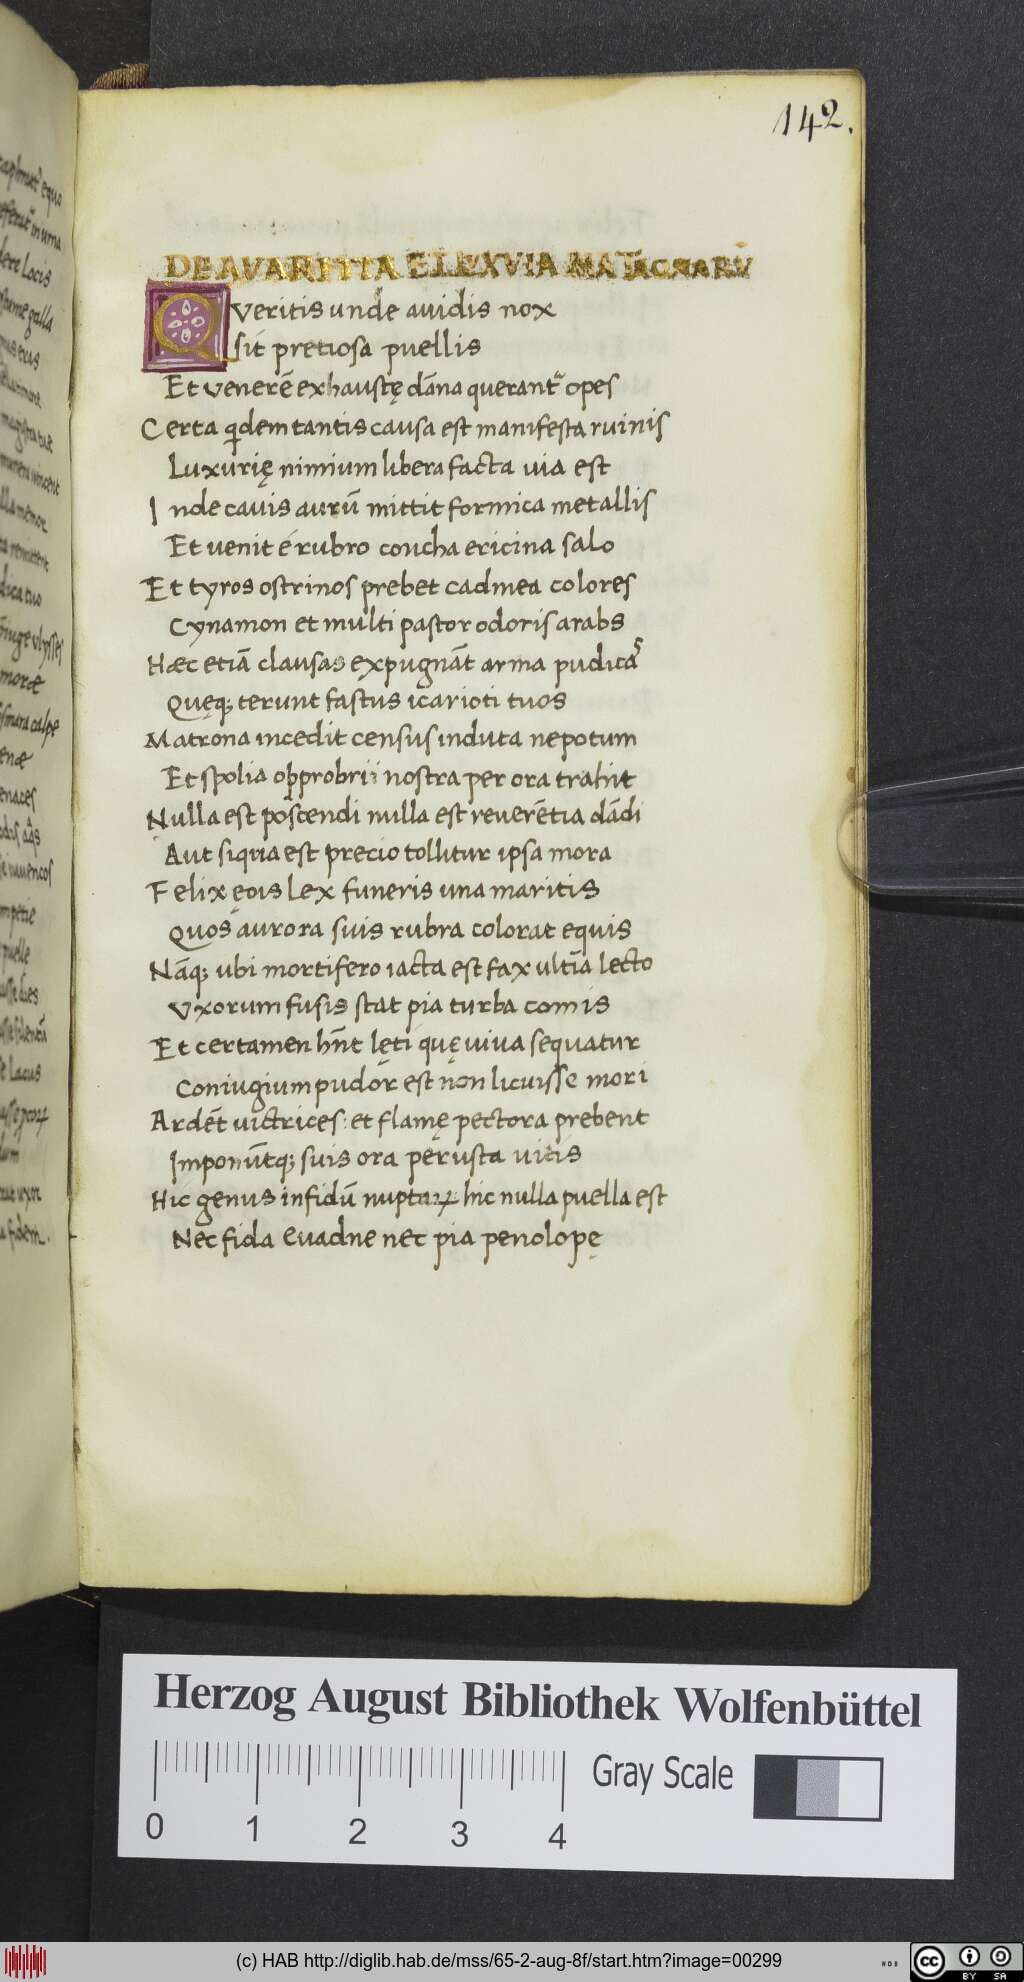 142.
DE AVARITIA ET LVXVIA MATRONARV
Queritis unde auidis nox
sit pretiosa puellis
Et venerē exhaustę dāna querantr opes
Certa qidem tantis causa est manifesta ruinis
Luxurię nimium libera facta uia est
Inde cauis aurū mittit formica metallis
Et uenit é rubro concha ericina salo
Et tyros ostrinos prebet cadmea colores
Cynamon et multi pastor odoris arabs
Hæc etiā clausas expugnāt arma pudicas
Quęq; terunt fastus icarioti tuos
Matrona incedit census induta nepotum
Et spolia opprobrii nostra per ora trahit
Nulla est poscendi nulla est reverētia dādi
Aut siqua est precio tollitur ipsa mora
Felix ęois lex funeris una maritis
Quos aurora suis rubra colorat equis
Nāq; ubi mortifero iacta est fax ultīa lecto
Vxorum fusis stat pia turba comis
Et certamen hn̄t lęti quę uiua sequatur
Coniugium pudor est non licuisse mori
Ardēt uictrices: et flamę pectora prebent
Imponūtq; suis ora perusta uitis
Hic genus infidū nuptaꝝ hic nulla puella est
Nec fida euadne nec pia penolopę
equo
in urna
locis
galla
ulysses
calpe
iuuencos
puelle
dies
lacus
uxor
fidem.
Herzog August Bibliothek Wolfenbüttel
0 1 2 3 4
Gray Scale
(c) HAB http://diglib.hab.de/mss/65-2-aug-8f/start.htm?image=00299
WDB
cc BY SA